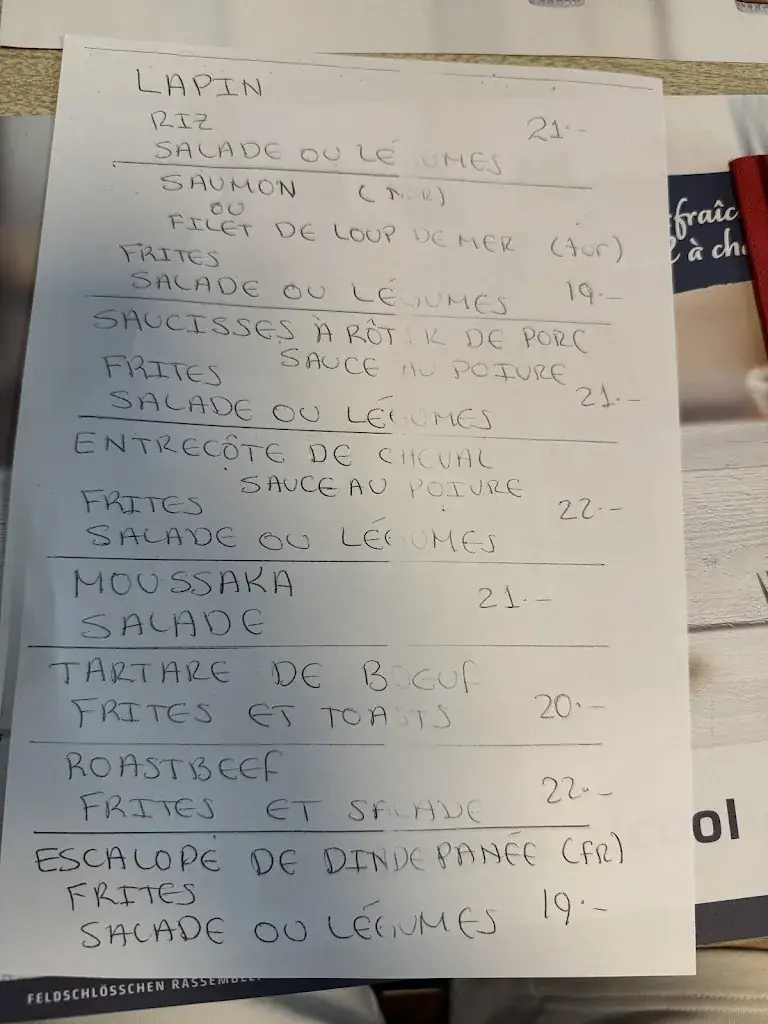 LAPIN
RIZ
21.-
SALADE OU LÉGUMES
SAUMON (NOR)
OU
FILET DE LOUP DE MER (TUR)
FRITES
SALADE OU LÉGUMES 19.-
SAUCISSES À RÔTIR DE PORC
SAUCE AU POIVRE
FRITES
21.-
SALADE OU LÉGUMES
ENTRECÔTE DE CHEVAL
SAUCE AU POIVRE
FRITES
22.-
SALADE OU LÉGUMES
MOUSSAKA
21.-
SALADE
TARTARE DE BOEUF
FRITES ET TOASTS 20.-
ROASTBEEF
22.-
FRITES ET SALADE
ESCALOPE DE DINDE PANÉE (FR)
FRITES
19.-
SALADE OU LÉGUMES
fraîc
à ch
ol
FELDSCHLÖSSCHEN